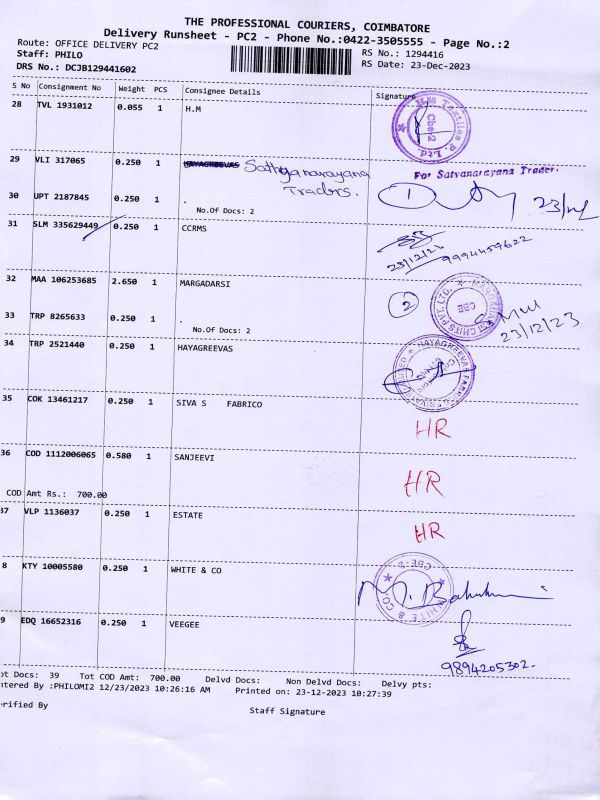 THE PROFESSIONAL COURIERS, COIMBATORE
Delivery Runsheet - PC2 - Phone No.:0422-3505555 - Page No.:2
Route: OFFICE DELIVERY PC2
Staff: PHILO
DRS No.: DCJB129441602
RS No.: 1294416
RS Date: 23-Dec-2023
S No Consignment No Weight PCS Consignee Details Signature
28 TVL 1931012 0.055 1 H.M
HM Textiles P. Ltd
Cbe-2
29 VLI 317065 0.250 1 HAYAGREEVAS Sathyanarayana
Traders.
For Satyanarayana Trader.
30 UPT 2187845 0.250 1 .
No.Of Docs: 2
1
31 SLM 335629449 0.250 1 CCRMS
23/12/23 9994459622
32 MAA 106253685 2.650 1 MARGADARSI
2
CBE
33 TRP 8265633 0.250 1 .
No.Of Docs: 2
23/12/23
34 TRP 2521440 0.250 1 HAYAGREEVAS
35 COK 13461217 0.250 1 SIVA S FABRICO
HR
36 COD 1112006065 0.580 1 SANJEEVI
HR
COD Amt Rs.: 700.00
37 VLP 1136037 0.250 1 ESTATE
HR
8 KTY 10005580 0.250 1 WHITE & CO
WHITE & CO
CBE-2
9 EDQ 16652316 0.250 1 VEEGEE
9894205302.
ot Docs: 39 Tot COD Amt: 700.00 Delvd Docs: Non Delvd Docs: Delvy pts:
ntered By :PHILOMI2 12/23/2023 10:26:16 AM Printed on: 23-12-2023 10:27:39
erified By
Staff Signature